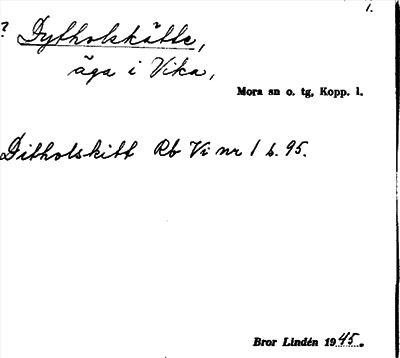 1.
? Dytholskätte,
äga i Vika,
Mora sn o. tg, Kopp. l.
Ditholskitt Rb Vi nr 1 s. 95.
Bror Lindén 1945.